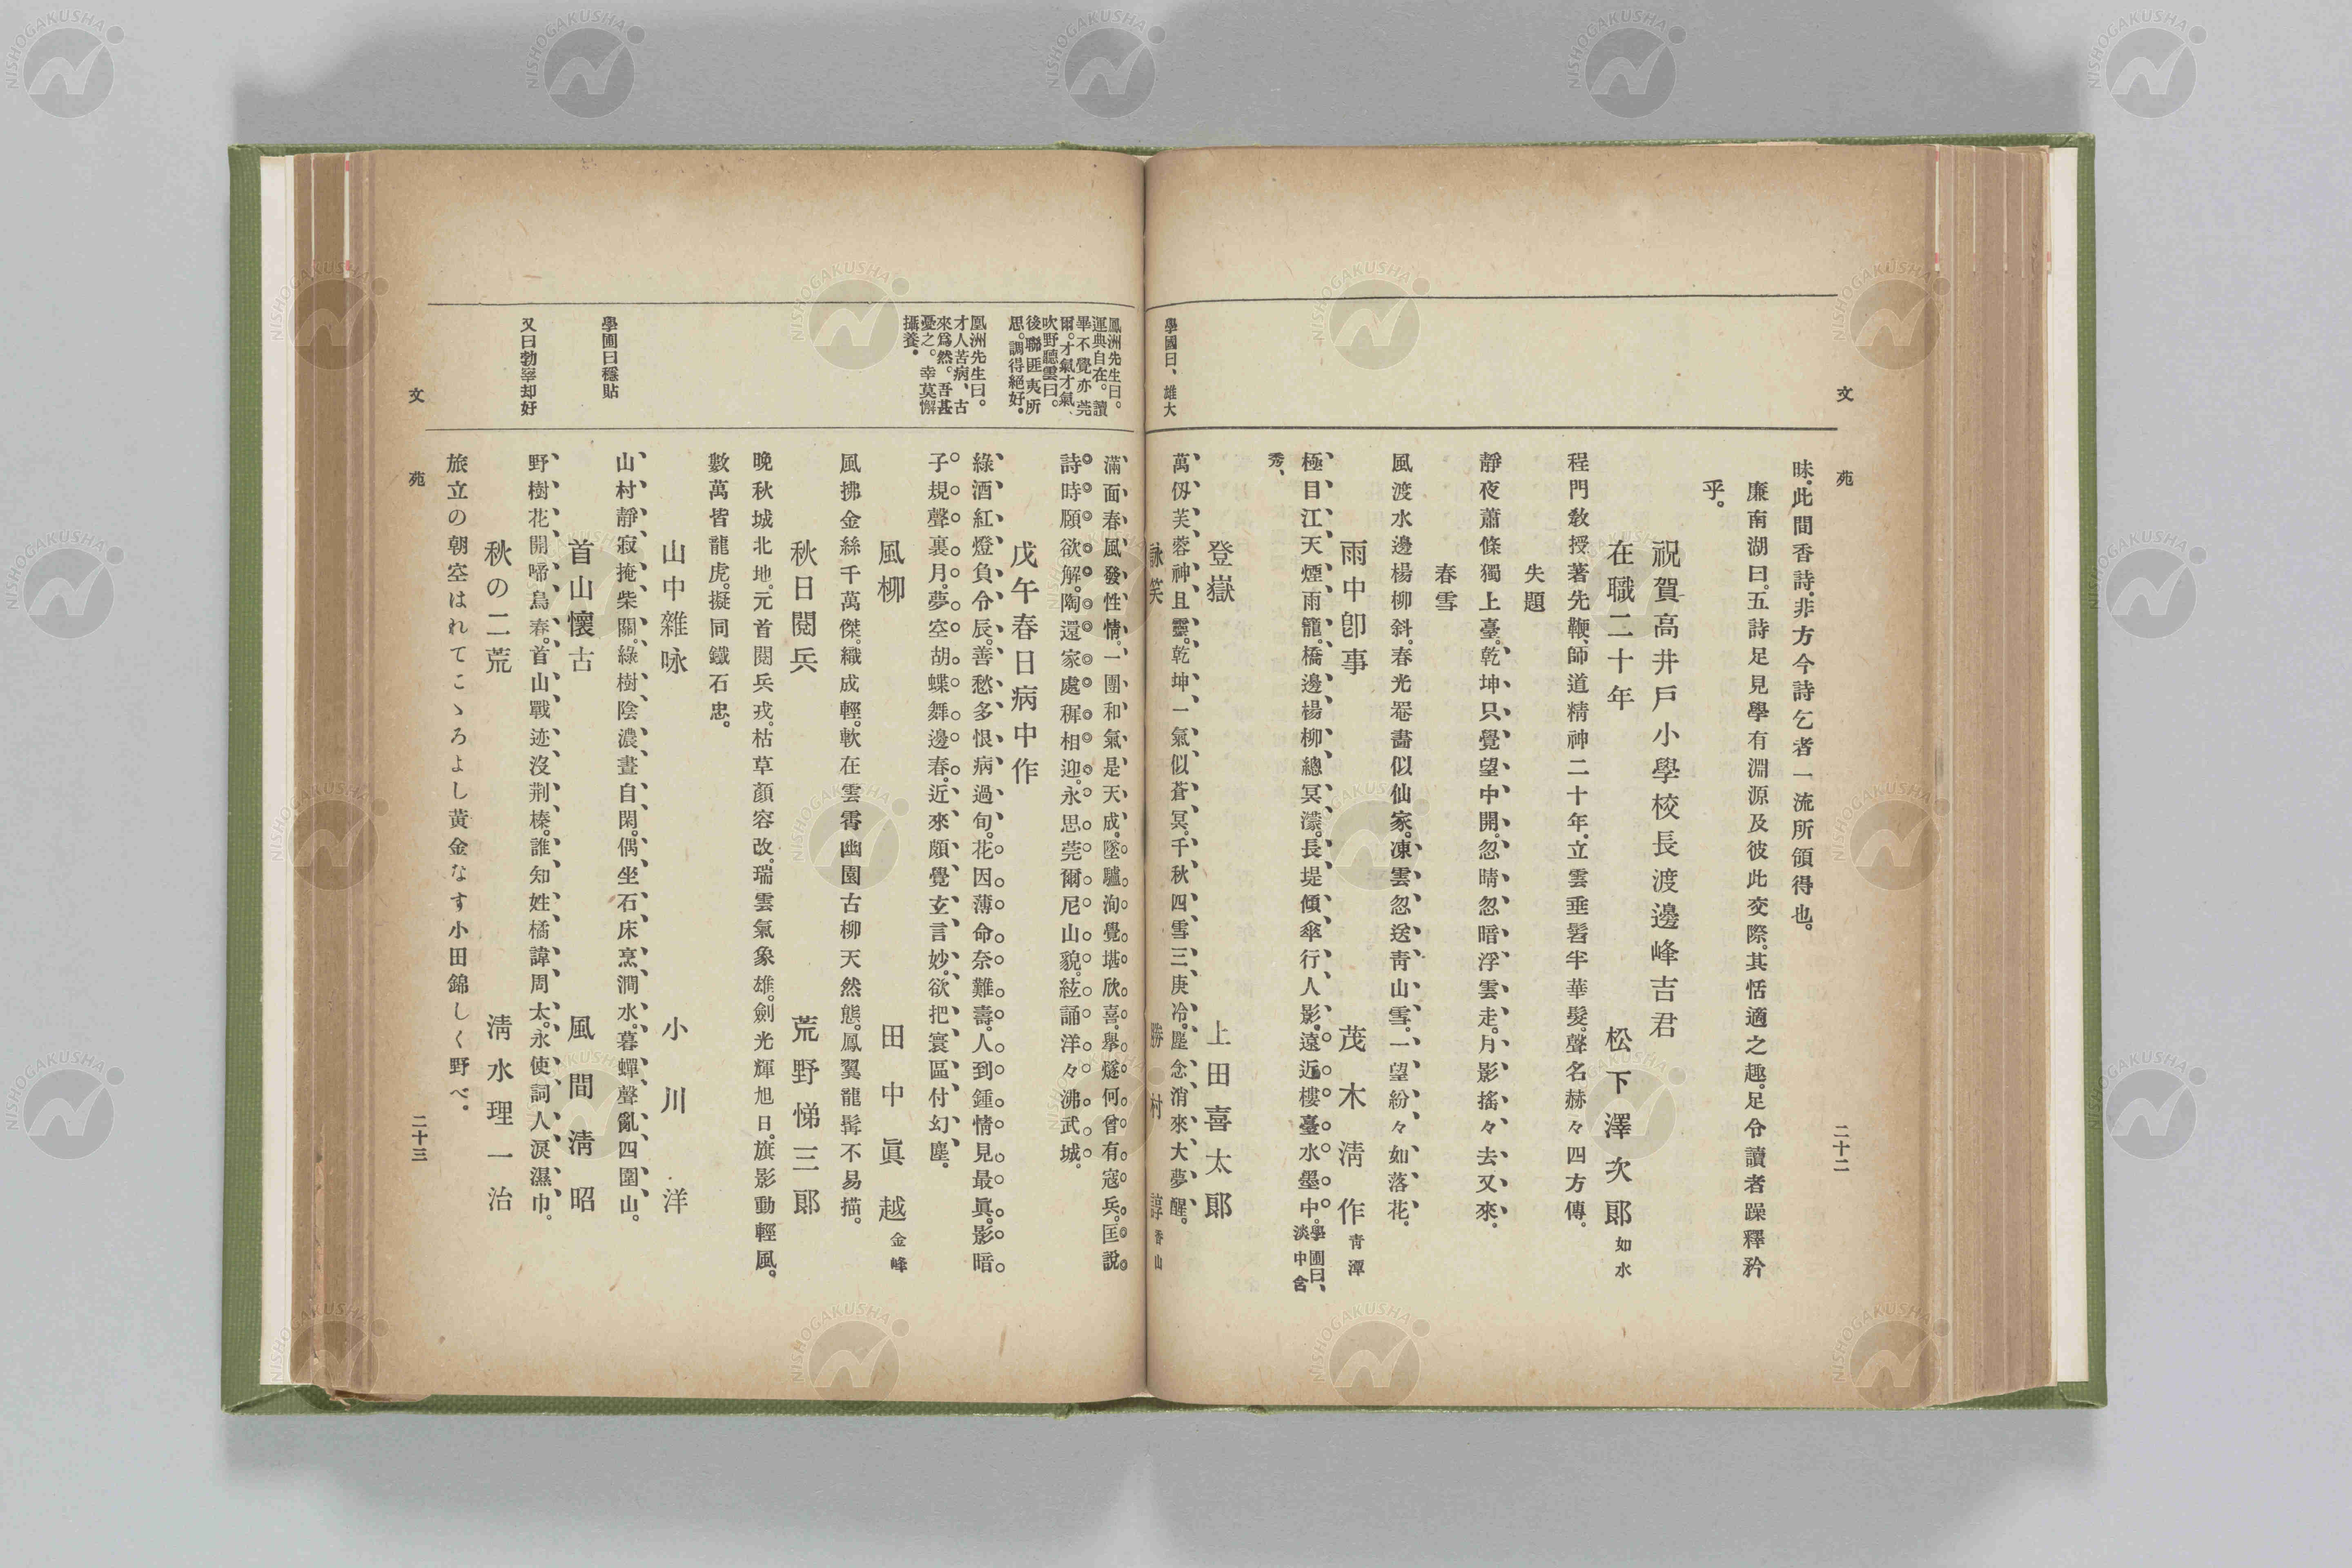 文苑
二十二
昧。此間香詩。非方今詩乞者一流所領得也。
廉南湖曰。五詩足見學有淵源及彼此交際。其恬適之趣。足令讀者躁釋矜
乎。
祝賀高井戶小學校長渡邊峰吉君
在職二十年 松下澤次郎 如水
程門敎授著先鞭。師道精神二十年。立雲垂髫半華髮。聲名赫々四方傳。
失題
靜夜蕭條獨上臺。乾坤只覺望中開。忽晴忽暗浮雲走。月影搖々去又來。
春雪
風渡水邊楊柳斜。春光罨畵似仙家。凍雲忽送靑山雪。一望紛々如落花。
雨中卽事 茂木淸作 靑潭
極目江天煙雨籠。橋邊楊柳總冥濛。長堤傾傘行人影。遠近樓臺水墨中。學圃曰、淡中含
秀、
登嶽 上田喜太郞
學國曰、雄大
萬仭芙蓉神且靈。乾坤一氣似蒼冥。千秋四雪三庚冷。塵念消來大夢醒。
詠笑 勝村諄 香山
鳳洲先生曰。
運典自在。讀
畢不覺亦莞
爾。才氣才氣、
吹野聽雲曰。
後聯匪夷所
思。調得絕好。
滿面春風發性情。一團和氣是天成。墜驢洵覺堪欣喜。擧燧何曾有寇兵。匡說
詩時願欲解。陶還家處穉相迎。永思莞爾尼山貌。絃誦洋々沸武城。
戊午春日病中作
凰洲先生曰。
才人苦病、古
來爲然。吾甚
憂之。幸莫懈
攝養。
綠酒紅燈負令辰。善愁多恨病過旬。花因薄命奈難壽。人到鍾情見最眞。影暗
子規聲裏月。夢空胡蝶舞邊春。近來頗覺玄言妙。欲把寰區付幻塵。
風柳 田中眞越 金峰
風拂金絲千萬傑。織成輕軟在雲霄。幽園古柳天然態。鳳翼龍髯不易描。
秋日閱兵 荒野悌三郞
晩秋城北地。元首閱兵戎。枯草顏容改。瑞雲氣象雄。劍光輝旭日。旗影動輕風。
數萬皆龍虎。擬同鐵石忠。
山中雜咏 小川洋
學圃曰穩貼
山村靜寂掩柴關。綠樹陰濃晝自閑。偶坐石床烹澗水。暮蟬聲亂四圍山。
首山懷古 風間淸昭
又曰勃窣却好
野樹花開啼鳥春。首山戰迹沒荆榛。誰知姓橘諱周太。永使詞人淚濕巾。
秋の二荒 淸水理一治
旅立の朝空はれてこゝろよし黃金なす小田錦しく野べ。
文苑
二十三